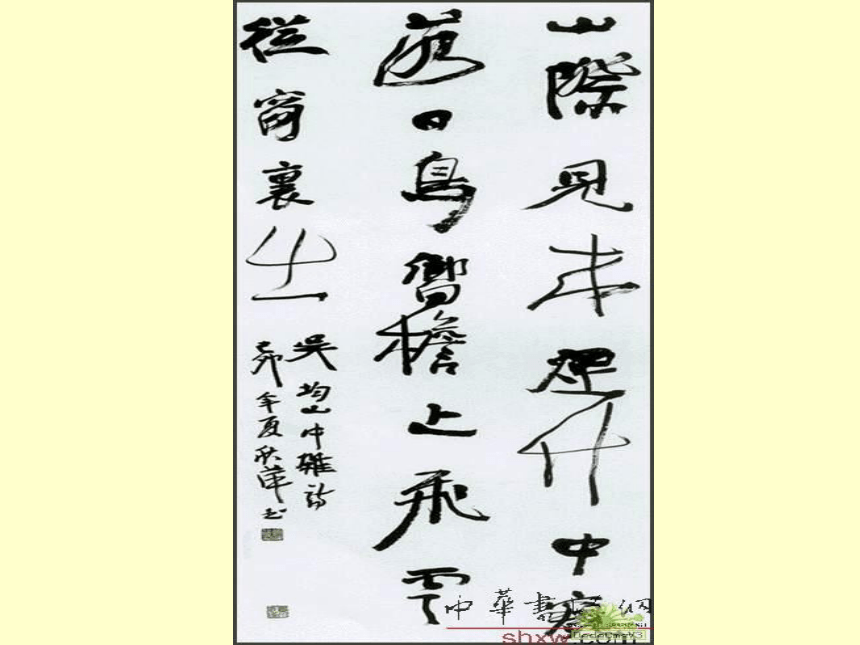 山際見來煙竹中窺
落日鳥嚮檐上飛雲
從窗裏出
吳均山中雜詩
己卯年夏秋萍书
shxw.com